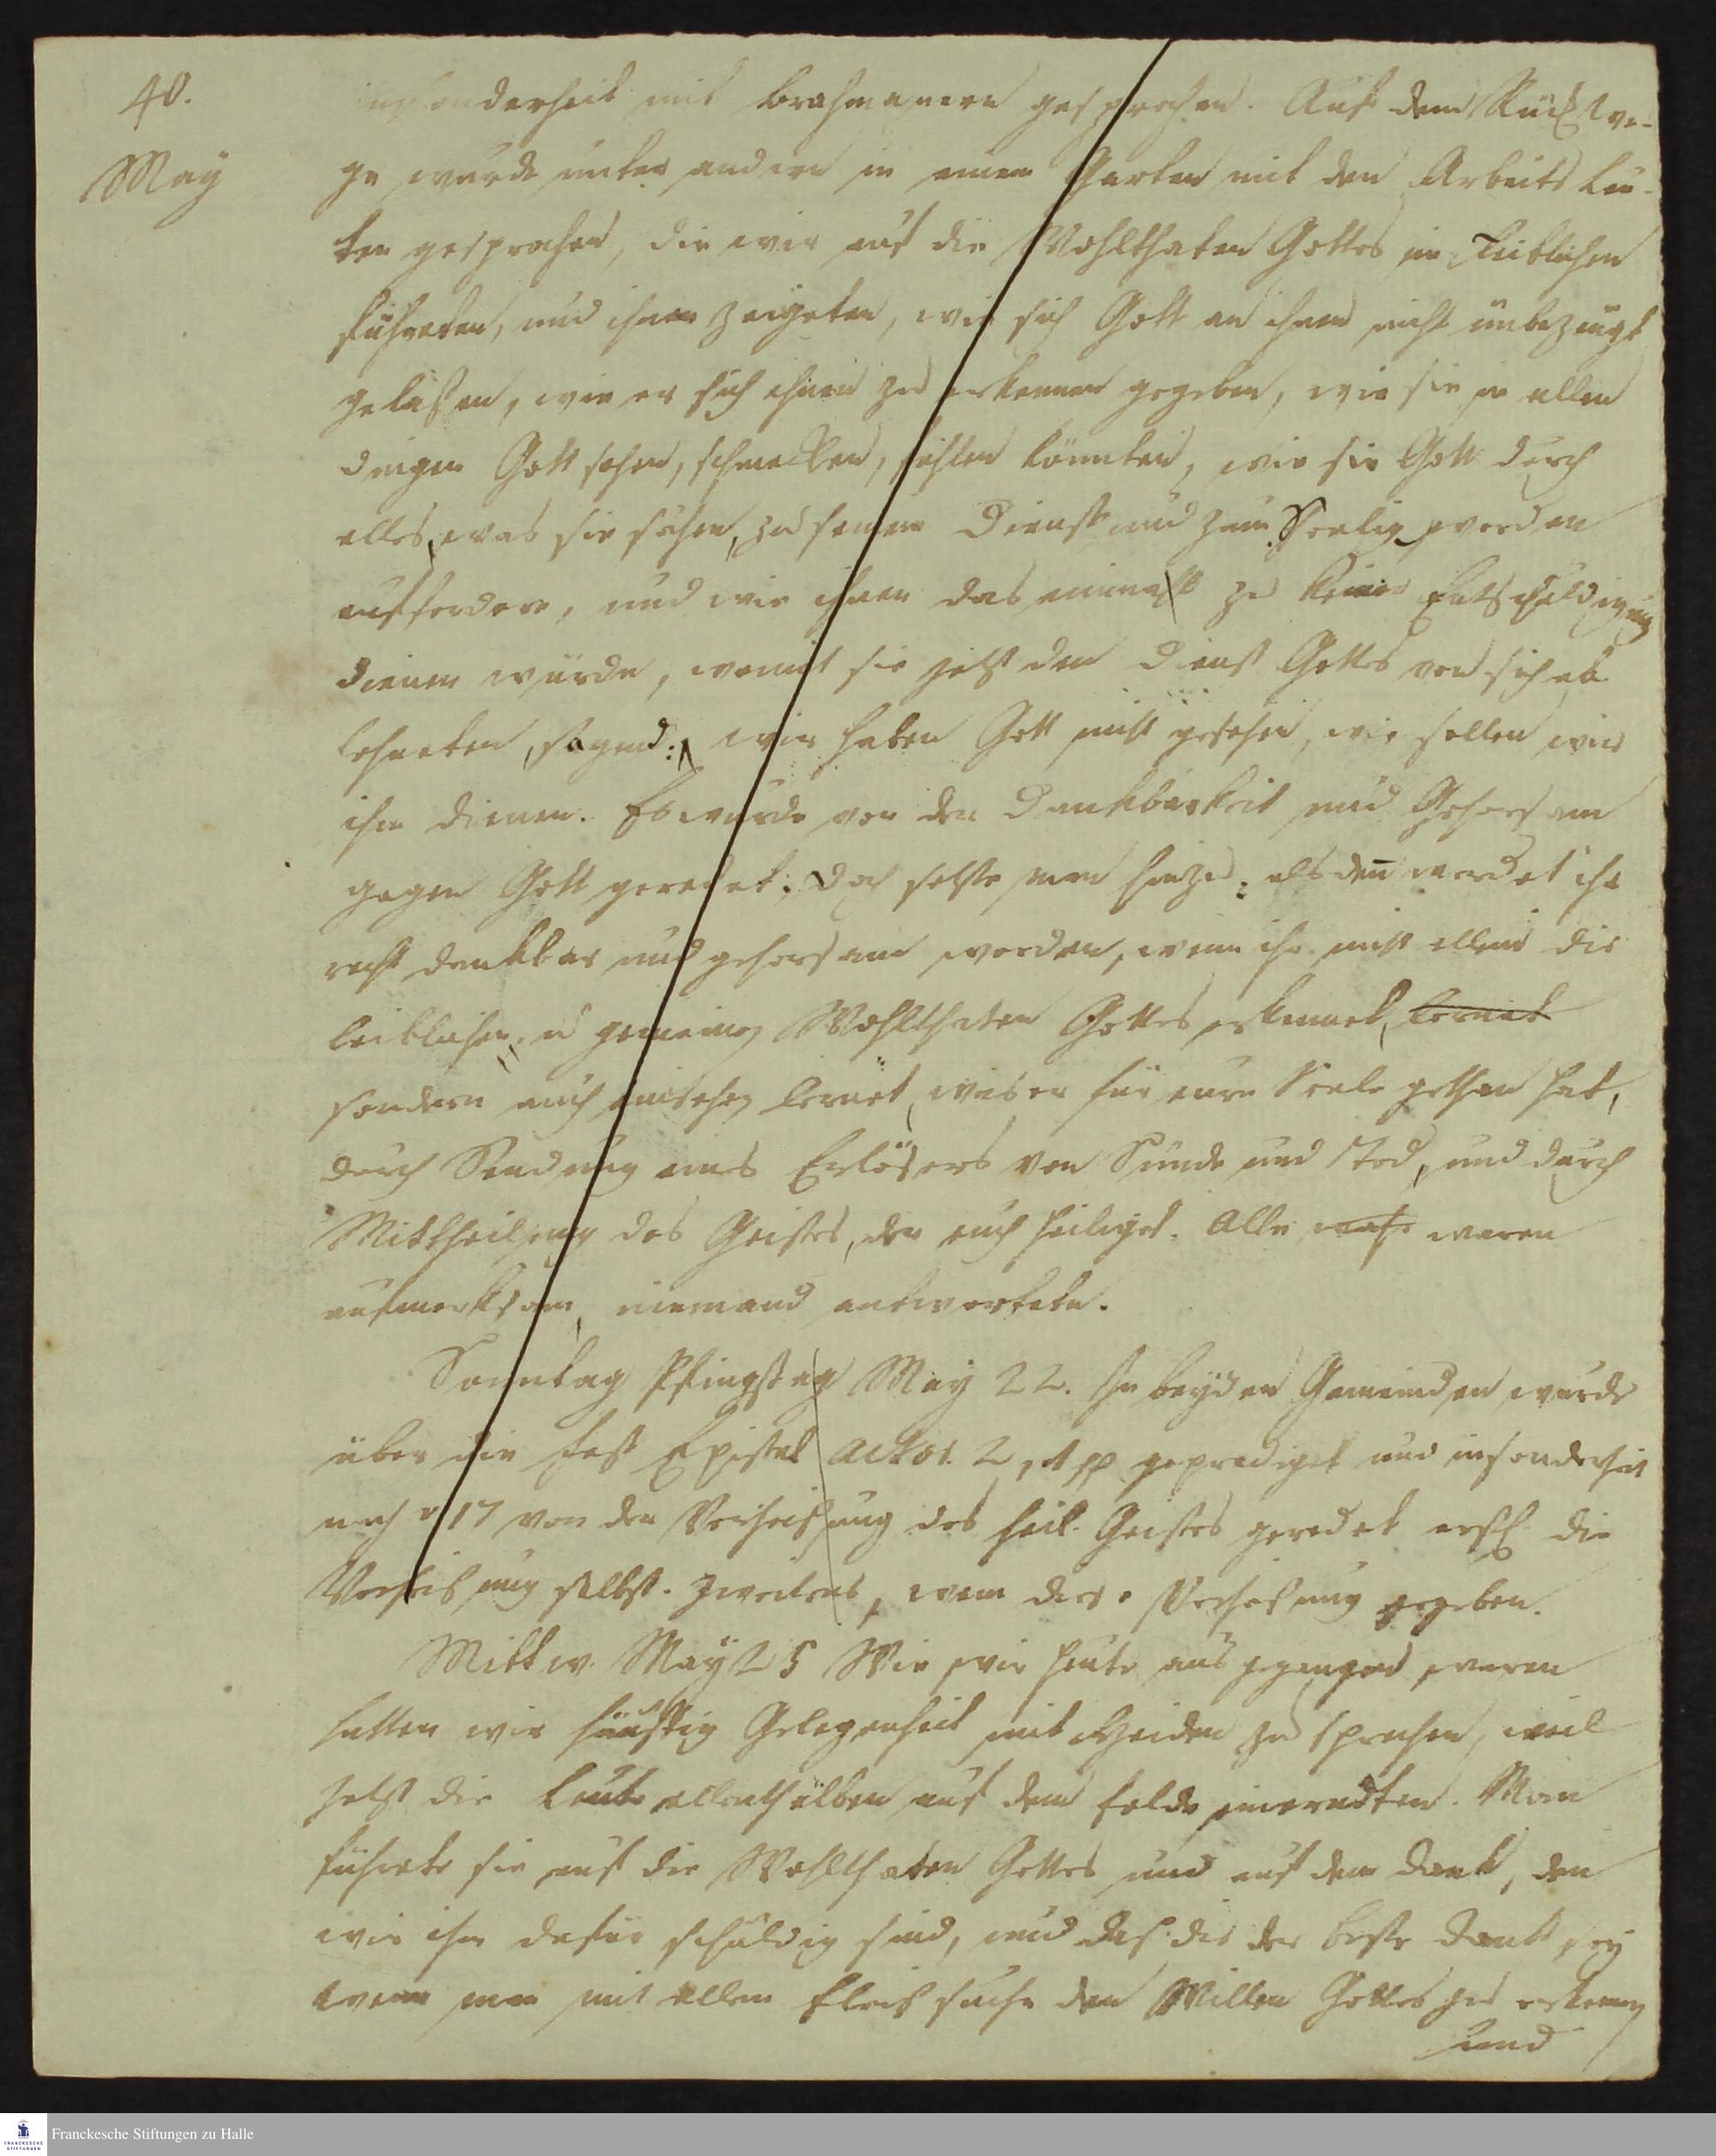 40.
May
insonderheit mit Brahmanern gesprochen. Auf dem Rückwe-
ge wurde unter andern in einem Garten mit den Arbeits Leu-
ten gesprochen, die wir auf die Wohlthaten Gottes im Leiblichen
führeten, und ihnen zeigeten, wie sich Gott an ihnen nicht unbezeugt
gelaßen, wie er sich ihnen zu erkennen gegeben, wie sie in allen
Dingen Gott sehen, schmecken, fühlen könnten, wie sie Gott durch
alles, was sie sähen, zu seinem Dienst und zum Seelig werden
auffordere, und wie ihnen das einmahl zu keiner Entschuldigung
dienen würde, womit sie jetzt den Dienst Gottes von sich ab
lehneten, sagend: wir haben Gott nicht gesehen, wie sollen wir
ihm dienen. Es wurde von der Dankbarkeit und Gehorsam
gegen Gott geredet; doch setzte man hinzu: alsdeñ werdet ihr
recht dankbar und gehorsam werden, wenn ihr nicht allein die
leiblichen u gemeinen Wohlthaten Gottes erkennet, lernet
sondern auch einsehen lernet, was er für eure Seele gethan hat,
durch Sendung eines Erlösers von Sünde und Tod, und durch
Mittheilung des Geistes, der euch heiliget. Alle waren
aufmerksam, niemand antwortete.
Sonntag Pfingsttag May 22. In beyden Gemeinden wurde
über die Fest Epistel Actor. 2, 1 pp geprediget und insonderheit
nach v 17 von der Verheißung des heil. Geistes geredet erstl. die
Verheißung selbst. Zweitens, wem diese Verheißung gegeben.
Mittw. May 25 Wie wir heute ausgegangen waren
hatten wir häuffig Gelegenheit mit Heiden zu sprechen, weil
jetzt die Leute allenthalben auf dem Felde einerndten. Man
führete sie auf die Wohlthaten Gottes und auf den Dank, den
wir ihm dafür schuldig sind, und daß dis der beste Dank sey
wenn man mit allem Fleiß suche den Willen Gottes zu erkennen
und
Franckesche Stiftungen zu Halle